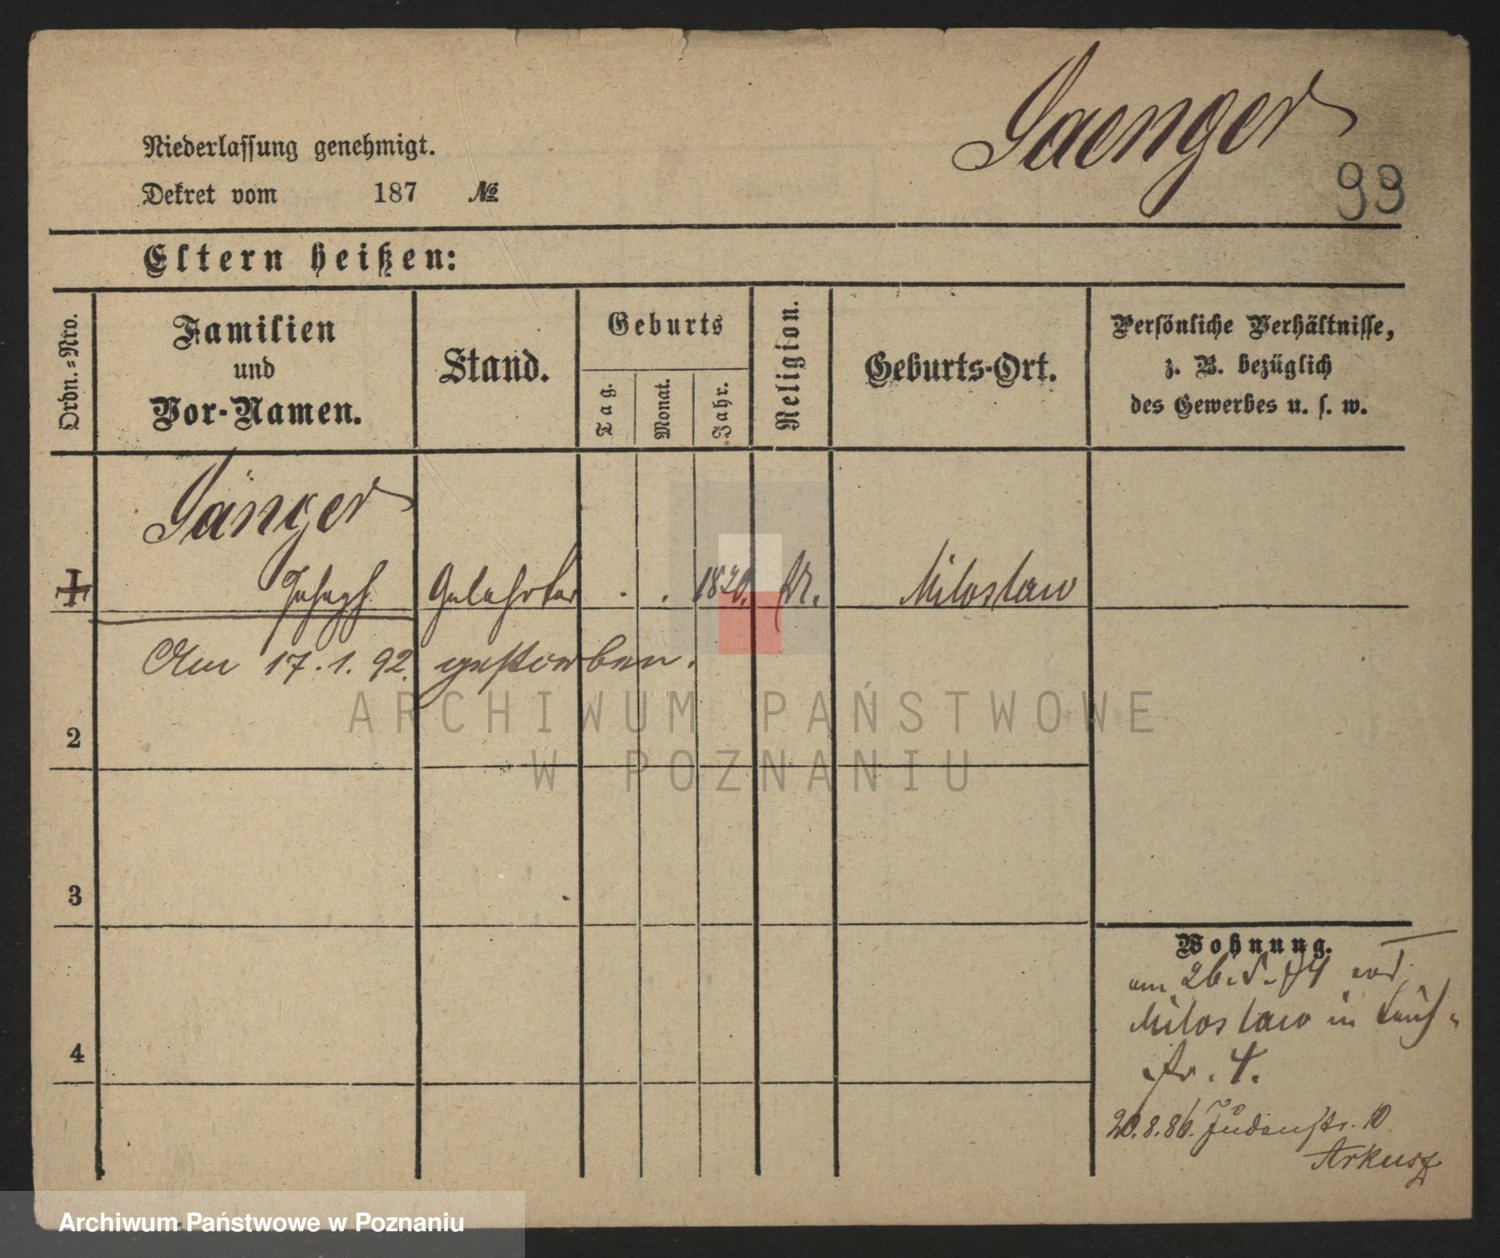 Saenger
99
Niederlassung genehmigt.
Dekret vom 187 №
Eltern heißen:
Ordn.=Nro.
Familien
und
Vor-Namen.
Stand.
Geburts
Tag.
Monat.
Jahr.
Religion.
Geburts-Ort.
Persönliche Verhältnisse,
z. B. bezüglich
des Gewerbes u. s. w.
Sänger
1 Joseph Gelehrter . . 1820. Miloslaw
Am 17.1.92. gestorben.
2
3
4
Wohnung.
am 26.5.74 von
Miloslaw in
str. 4.
20.8.86. Judenstr. 10
Arkusz
ARCHIWUM PAŃSTWOWE
W POZNANIU
Archiwum Państwowe w Poznaniu